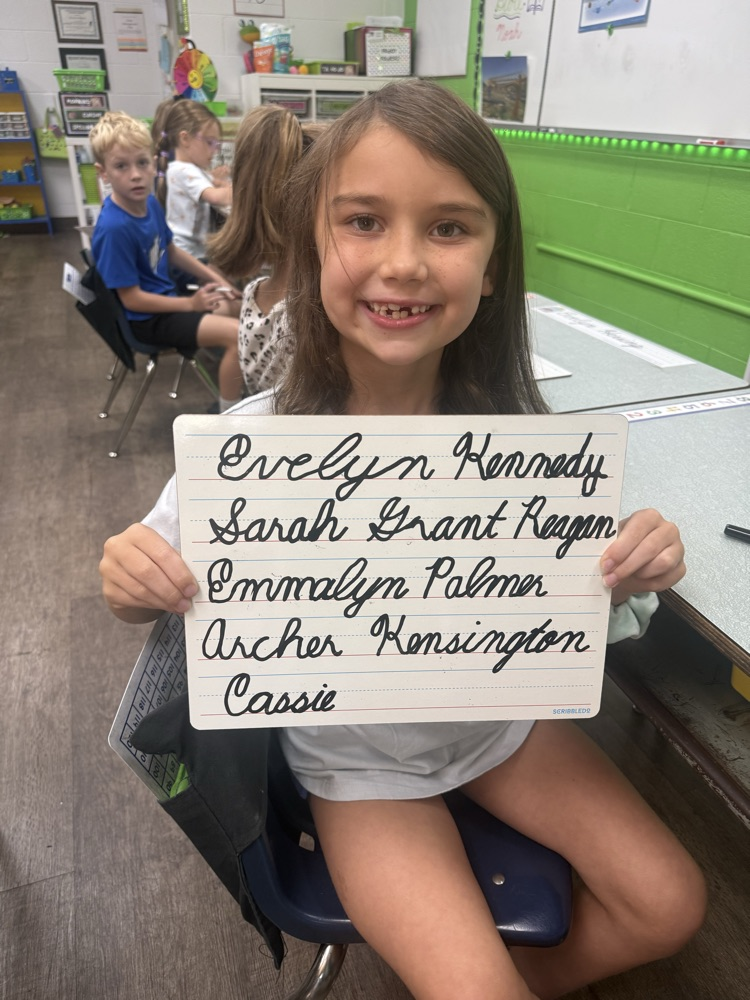 Evelyn Kennedy
Sarah Grant Reagan
Emmalyn Palmer
Archer Kensington
Cassie
SCRIBBLEDO